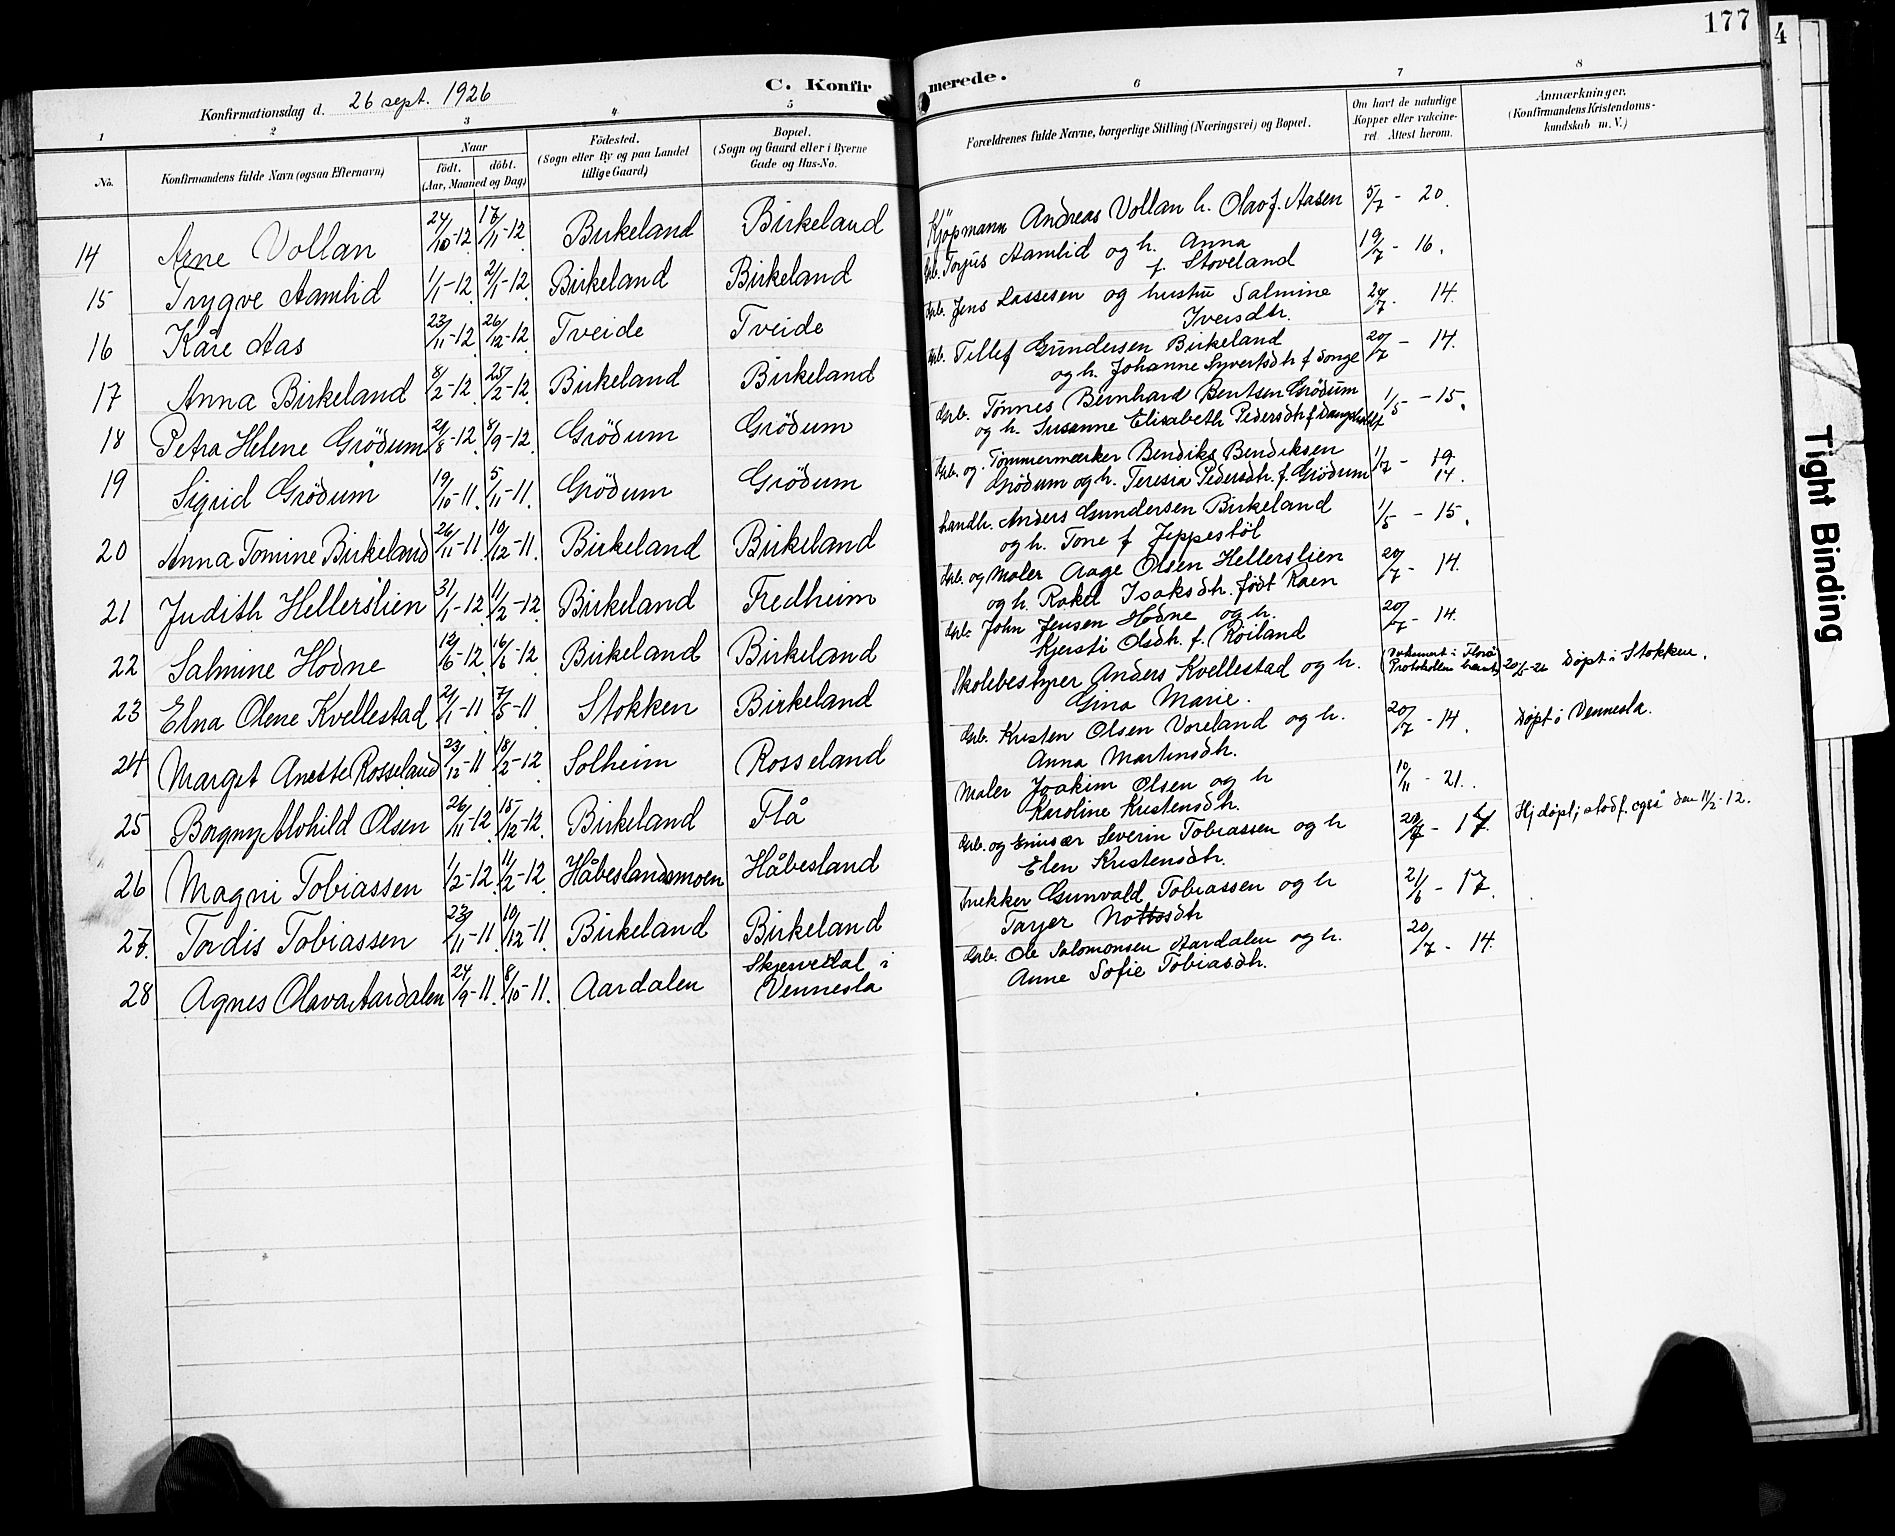 177
4
C. Konfirmerede.
Konfirmationsdag d. 26 sept. 1926
1 2 3 4 5 6 7 8
No.
Konfirmandens fulde Navn (ogsaa Efternavn)
Naar
født. døbt.
(Aar, Maaned og Dag)
Fødested.
(Sogn eller By og paa Landet
tillige Gaard)
Bopæl.
(Sogn og Gaard eller i Byerne
Gade og Hus-No.
Forældrenes fulde Navne, borgerlige Stilling (Næringsvei) og Bopæl.
Om havt de naturlige
Kopper eller vaccine-
ret. Attest herom.
Anmærkninger.
(Konfirmandens Kristendoms-
kundskab m. V.)
14 Arne Vollan 24/10-12 17/11-12 Birkeland Birkeland Kjøpmann Andreas Vollan h. Olav f. Aasen 5/7 - 20.
15 Trygve Aamlid 1/1-12 2/1-12 Birkeland Birkeland Grb. Torjus Aamlid og h. Anna 19/7 - 16.
f. Stoveland
16 Kåre Aas 23/11-12 26/12-12 Tveide Tveide Grb. Jens Lassesen og hustru Salmine 24/7. 14.
Iversdtr.
17 Anna Birkeland 8/2-12 25/2-12 Birkeland Birkeland Grb. Tellef Gundersen Birkeland 20/7 - 14.
og h. Johanne Syvertsdtr f Songe
18 Petra Helene Grödum 24/8-12 8/9-12 Grödum Grödum Grb. Tønnes Bernhard Bentsen Grödum 1/5 - 15.
og h. Susanne Elisabeth Pedersdtr f
19 Sigrid Grödum 19/10-11. 5/11-11. Grödum Grödum Grb. og Tømmermærker Bendiks Bendiksen 1/7 - 19
Grödum og h. Teresia Pedersdtr. f. Grödum 14.
20 Anna Tomine Birkeland 26/11-11 10/12-11. Birkeland Birkeland Landh. Anders Gundersen Birkeland 1/5 - 15.
og h. Tone f Jeppestøl
21 Judith Hellerslien 31/1-12 11/2-12 Birkeland Fredheim Grb. og Maler Aage Olsen Hellerslien 20/7 - 14.
og h. Rakel Isaksdtr. født Raen
22 Salmine Hodne 12/6-12 16/6-12 Birkeland Birkeland Grb. John Jensen Hodne og h. 20/7 - 14.
Kjersti Olsdtr. f. Röiland
23 Elna Olene Kvellestad 2/1-11 7/5-11 Stokken Birkeland Skolebestyrer Anders Kvellestad og h. Døpt i Stokken.
Gina Marie.
24 Marget Anette Rosseland 23/12-11 18/2-12 Solheim Rosseland Grb. Kristen Olsen Voreland og h. 20/7 - 14. Døpt i Vennesla.
Anna Martinsdtr.
25 Borgny Alohild Olsen 26/11-12 15/12-12. Birkeland Flå Maler Joakim Olsen og h 10/11 - 21.
Karoline Kristensdtr.
26 Magni Tobiassen 1/2-12 11/2-12. Håbeslandsmoen Håbesland Grb. og Severin Tobiassen og h 20/7 - 14. Hj døpt, stadf. også den 11/2-12.
Elen Kristensdtr.
27. Tordis Tobiassen 23/11-11 10/12-11. Birkeland Birkeland Snekker Gunvald Tobiassen og h 21/6 - 17.
Tarjer
28 Agnes Olava Aardalen 24/9-11. 8/10-11. Aardalen Skjervedal i Grb. Ole Salomonsen Aardalen og h. 20/7 - 14.
Vennesla Anne Sofie Tobiasdtr.
Tight Binding